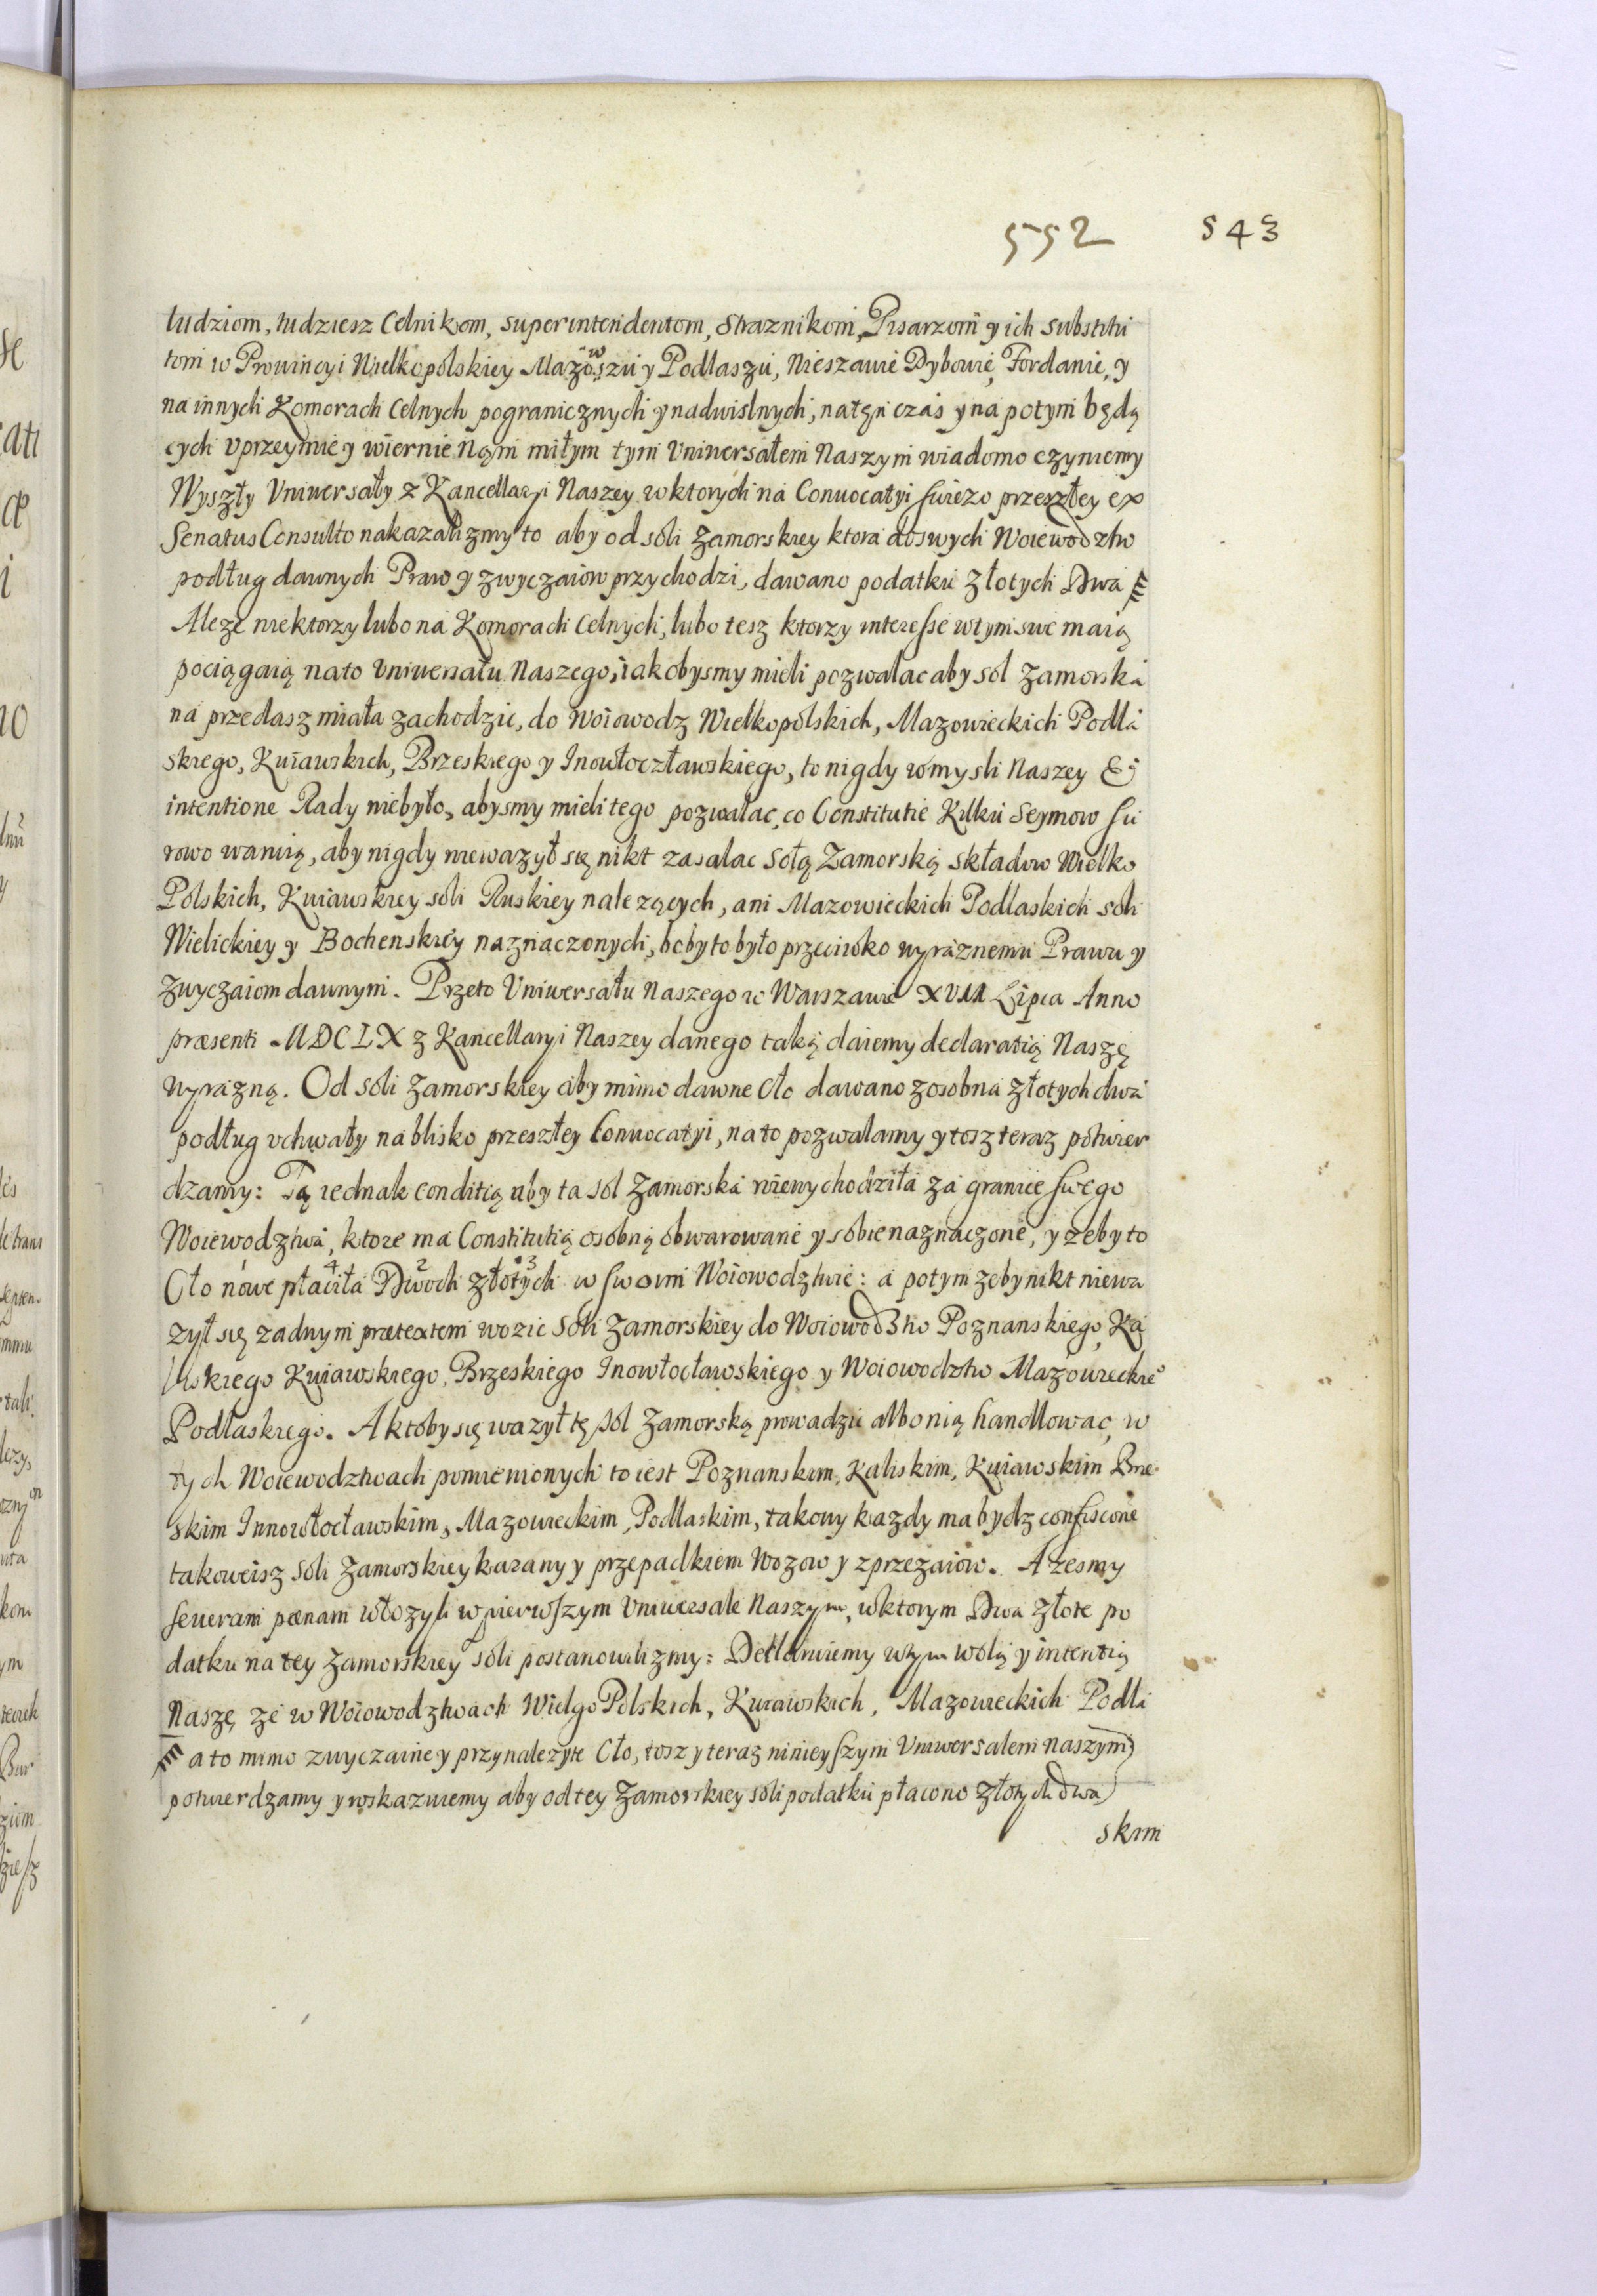 552 543
ludziom, tudziesz Celnikom, superintendentom, Straznikom, Pisarzom y ich substitu
tom w Prowincyi Wielkopolskiey Mazowszu y Podlaszu, Nieszawie Dybowie, Fordanie, y
na innych Komorach Celnych pogranicznych y nadwislnych, na tęn czas y na potym będą
cych vprzeymie y wiernie Nąm miłym tym Vniwersałem Naszym wiadomo czyniemy
Wyszły Vniwersały z Kancellaryi Naszey w ktorych na Conuocatyi swiezo przeszłey ex
Senatus Consulto nakazalizmy to aby od soli zamorskiey ktora do swych Woiewodztw
podług dawnych Praw y zwyczaiow przychodzi, dawano podatku złotych Dwa
Ale ze niektorzy lubo na Komorach Celnych, lubo tesz ktorzy interesse w tym swe maią
pociągaią na to Vniwersału Naszego, iakobysmy mieli pozwalac aby sol zamorska
na przedasz miała zachodzic, do Woiowodz Wielkopolskich, Mazowieckich Podla
skiego, Kuiawskich, Brzeskiego y Inowłoczławskiego, to nigdy w mysli Naszey &
intentione Rady niebyło, abysmy mieli tego pozwalac, co Constitutie Kilku Seymow su
rowo warnią, aby nigdy niewazył się nikt zasalac Solą Zamorską składow Wielko
Polskich, Kuiawskiey soli Ruskiey nalezących, ani Mazowieckich Podlaskich soli
Wielickiey y Bochenskiey naznaczonych, bo by to było przeciwko wyraznemu Prawu y
zwyczaiom dawnym. Przeto Vniwersału Naszego w Warszawie XVII Lipca Anno
præsenti MDCLX z Kancellaryi Naszey danego taką daiemy declaratią Naszę
wyrazną. Od soli zamorskiey aby mimo dawne Cło dawano zosobna złotych dwa
podług vchwały na blisko przeszłey Conuocatyi, na to pozwalamy y tosz teraz potwier
dzamy: Tą iednak conditią aby ta sol zamorska niewychodziła za granice swego
Woiewodztwa, ktore ma Constitutią osobną obwarowane y sobie naznaczone, y zeby to
Cło nowe płaciła 4 Dwoch 2 złotych 3 w swoim Woiowodztwie: a potym zeby nikt niewa
zył się zadnym prætextem wozic soli zamorskiey do Woiowodztwo Poznanskiego, Ka
liskiego Kuiawskiego, Brzeskiego Inowłocławskiego y Woiowodztw Mazowieckieo
Podlaskiego. A ktoby się wazył tę sol zamorską prowadzic albo nią handlowac, w
tych Woiewodztwach pomienionych to iest Poznanskim, Kaliskim, Kuiawskim Brze
skim Innowłocławskim, Mazowieckim, Podlaskim, takowy kazdy ma bydz confiscone
takoweisz soli zamorskiey karany y przepadkiem Wozow y zprzezaiow. A zesmy
seueram pœnam włozyli w pierwszym Vniwersale Naszym, w ktorym Dwa złote po
datku na tey zamorskiey soli postanowilizmy: Declaruiemy w tym wolą y intentią
Naszę ze w Woiowodztwach WielgoPolskich, Kuiawskich, Mazowieckich Podla
a to mimo zwyczaine y przynalezyte Cło, tosz y teraz ninieyszym Vniwersalem naszym
potwierdzamy y roskazuiemy aby od tey zamorskiey soli podatku płacono złotych dwa
skim